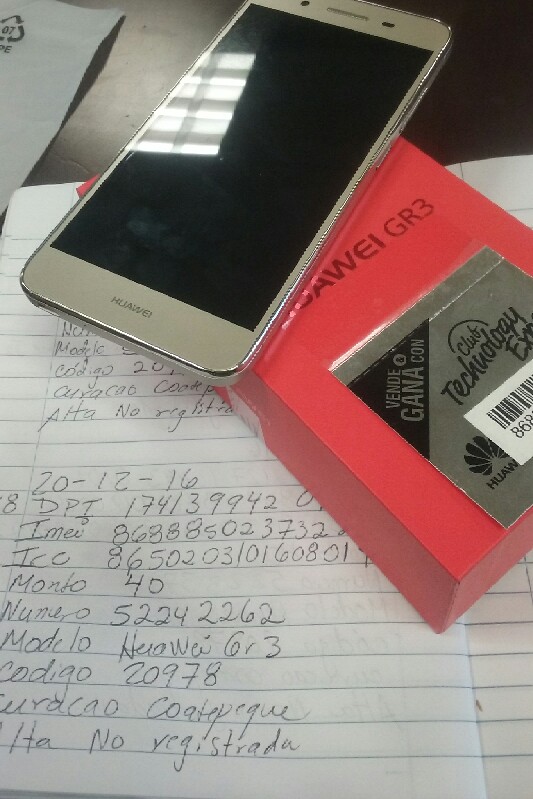 07
PE
HUAWEI
HUAWEI GR3
VENDE Y
GANA CON
Club
Technology
HUAW
Modelo
Codigo 20
Curacao Coatep
Alta No registra
20-12-16
8 DPI 174139942 0
Imei 86888502373 2
Icc 8650203101608019
Monto 40
Numero 52242262
Modelo Huawei Gr3
Codigo 20978
Curacao Coatepeque
Alta No registrada